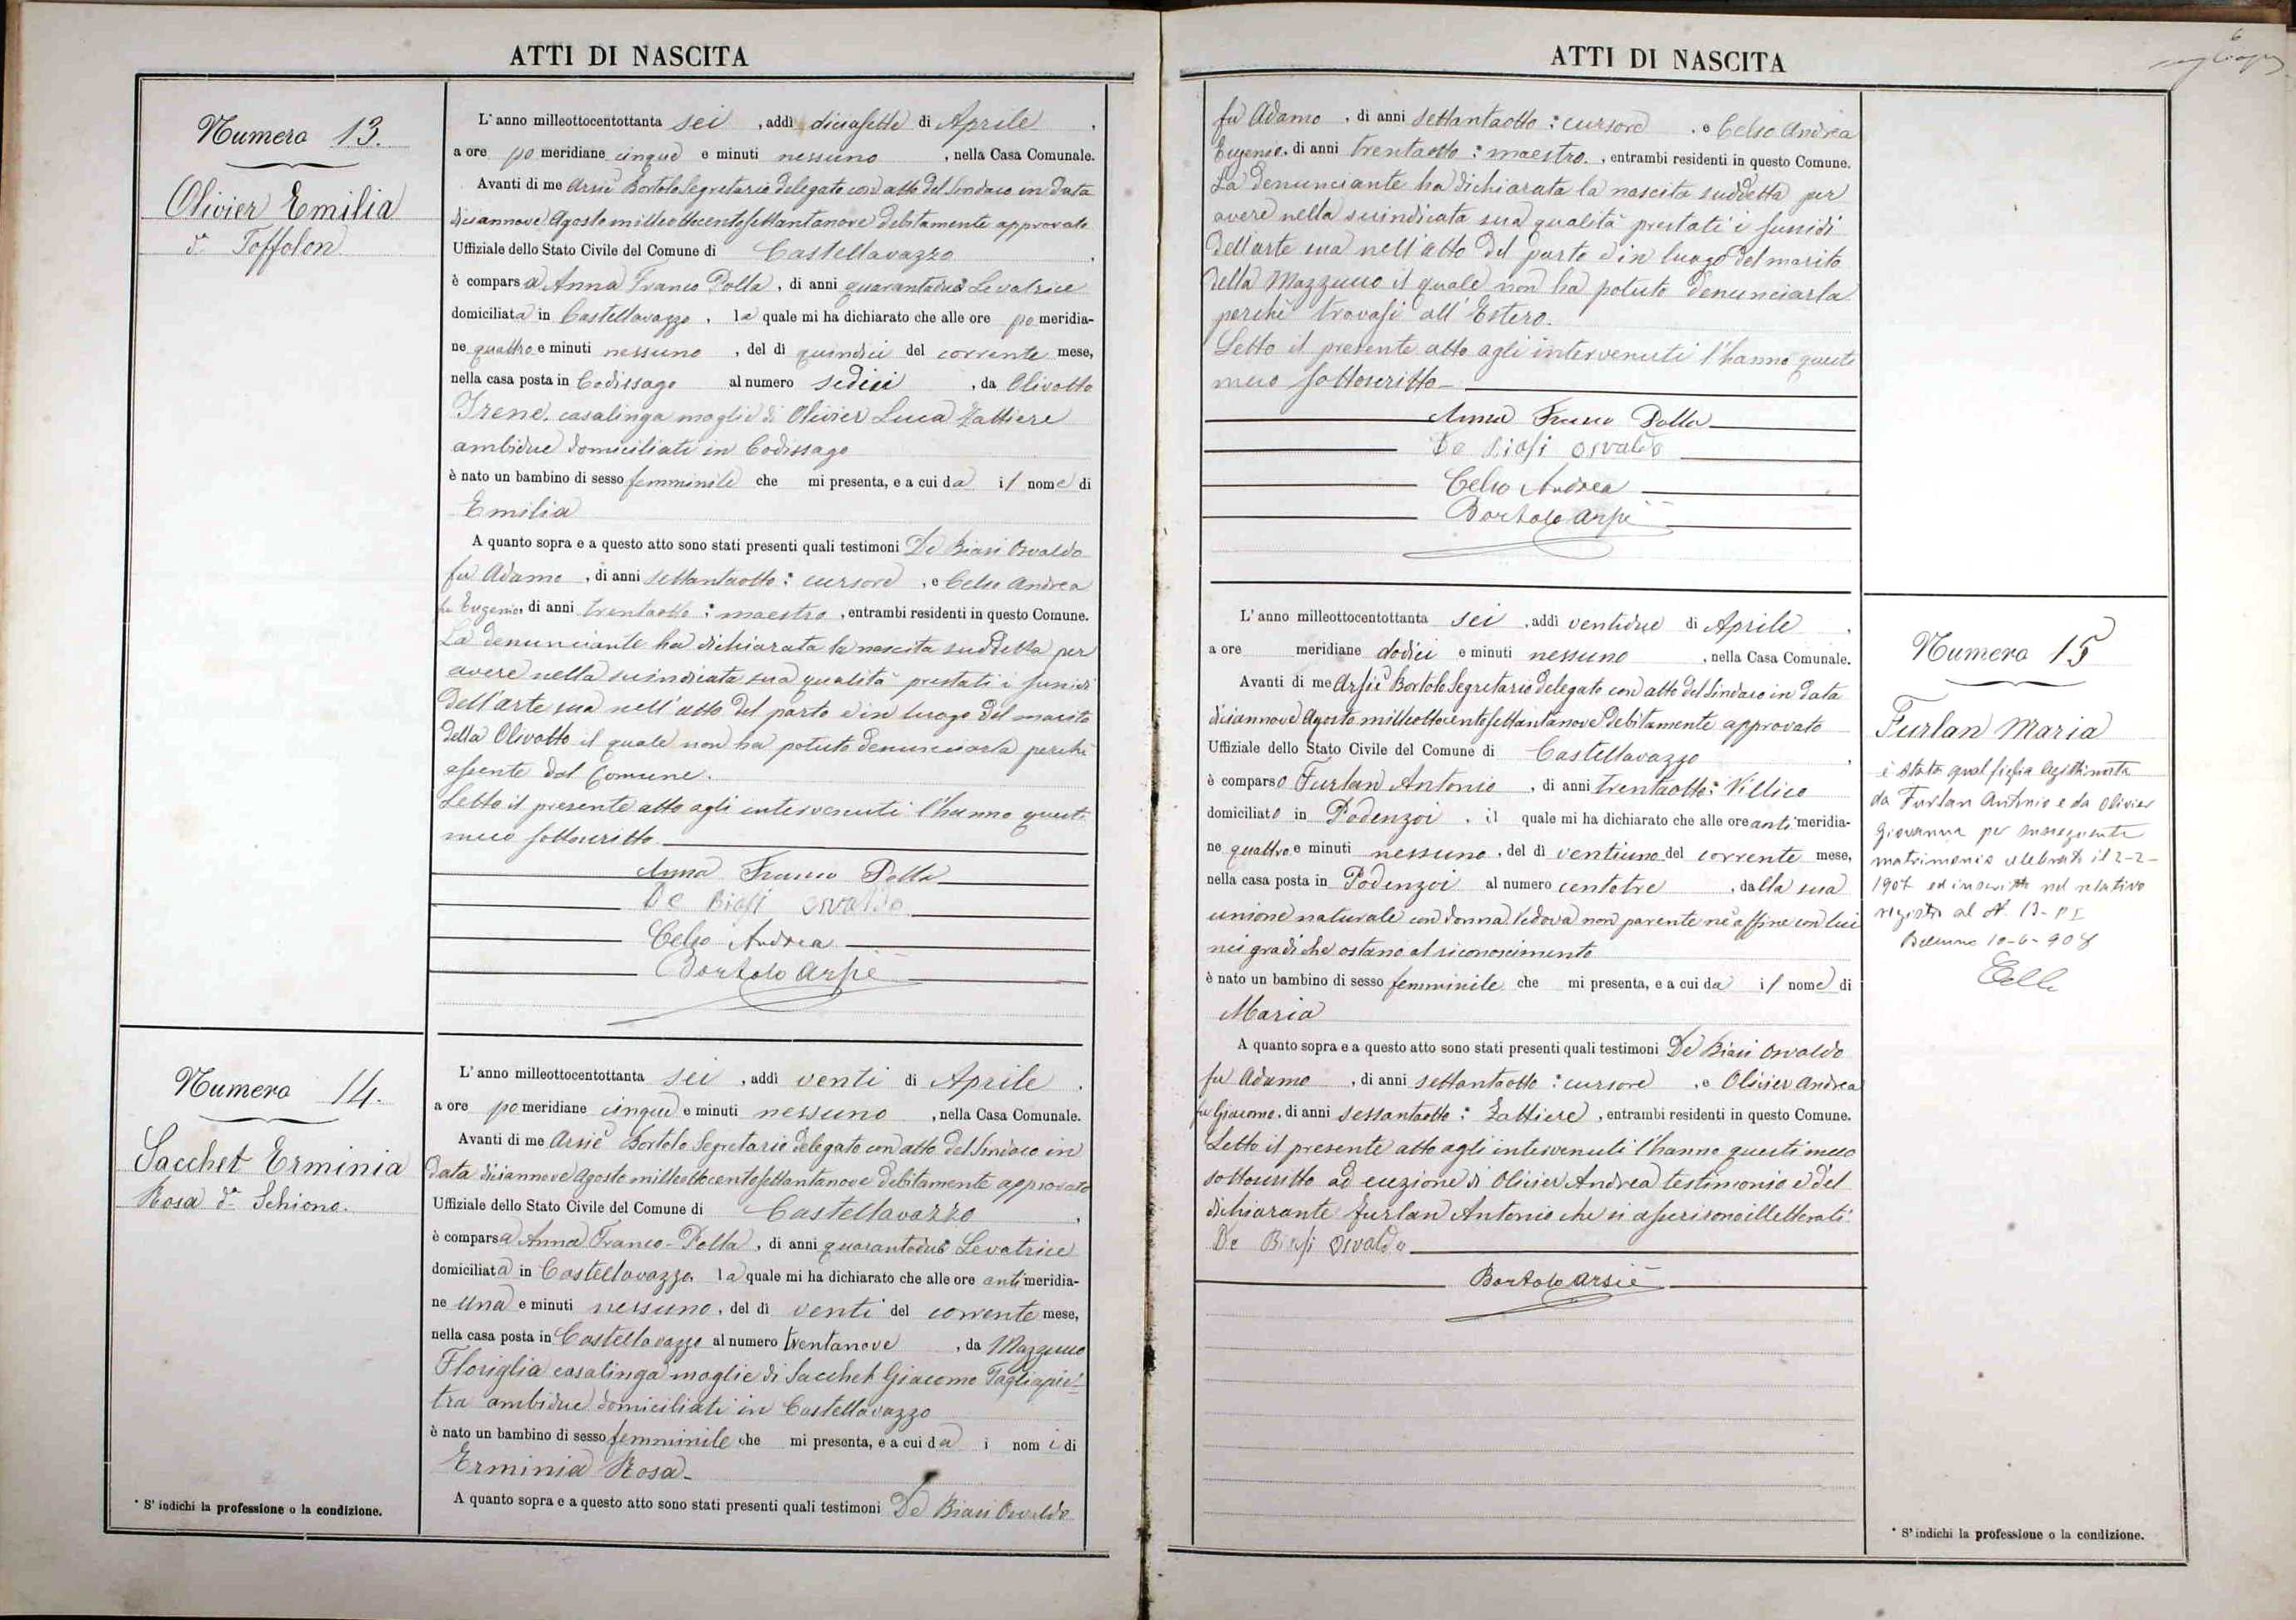 ATTI DI NASCITA
Numero 13.
Olivier Emilia
dº Toffolon
L' anno milleottocentottanta sei , addì diciasette di Aprile ,
a ore po meridiane cinque e minuti nessuno , nella Casa Comunale.
Avanti di me Arsiè Bortolo Segretario delegato con atto del Sindaco in Data
diciannove Agosto milleottocentosettantanove debitamente approvato
Uffiziale dello Stato Civile del Comune di Castellavazzo ,
è comparsa Anna Franco Polla , di anni quarantadue Levatrice
domiciliata in Castellavazzo , la quale mi ha dichiarato che alle ore po meridia-
ne quattro e minuti nessuno , del dì quindici del corrente mese,
nella casa posta in Codissago al numero sedici , da Olivotto
Irene, casalinga moglie di Olivier Luca Zattiere
ambidue domiciliati in Codissago
è nato un bambino di sesso femminile che mi presenta, e a cui da il nome di
Emilia
A quanto sopra e a questo atto sono stati presenti quali testimoni De Biasi Osvaldo
fu Adamo , di anni settantaotto : cursore , e Celso Andrea
fu Eugenio, di anni trentaotto : maestro , entrambi residenti in questo Comune.
La denunciante ha dichiarata la nascita suddetta per
avere nella suindicata sua qualità prestati i sussidi
dell'arte sua nell'atto del parto e in luogo del marito
della Olivotto il quale non ha potuto denunciarla perchè
assente dal Comune.
Letto il presente atto agli intervenuti l'hanno questi
meco sottoscritto
Anna Franco Polla
De Biasi Osvaldo
Celso Andrea
Bortolo Arsiè
Numero 14.
Sacchet Erminia
Rosa dº Schiono.
L' anno milleottocentottanta sei , addì venti di Aprile ,
a ore po meridiane cinque e minuti nessuno , nella Casa Comunale.
Avanti di me Arsiè Bortolo Segretario delegato con atto del Sindaco in
Data diciannove Agosto milleottocentosettantanove debitamente approvato
Uffiziale dello Stato Civile del Comune di Castellavazzo ,
è comparsa Anna Franco-Polla , di anni quarantadue Levatrice
domiciliata in Castellavazzo, la quale mi ha dichiarato che alle ore anti meridia-
ne una e minuti nessuno , del dì venti del corrente mese,
nella casa posta in Castellavazzo al numero trentanove , da Mazzucco
Floriglia casalinga moglie di Sacchet Giacomo Tagliapie-
tra ambidue domiciliati in Castellavazzo
è nato un bambino di sesso femminile che mi presenta, e a cui da i nomi di
Erminia Rosa-
A quanto sopra e a questo atto sono stati presenti quali testimoni De Biasi Osvaldo
* S' indichi la professione o la condizione.
ATTI DI NASCITA
6
fu Adamo , di anni settantaotto : cursore , e Celso Andrea
Eugenio, di anni trentaotto : maestro , entrambi residenti in questo Comune.
La denunciante ha dichiarata la nascita suddetta per
avere nella suindicata sua qualità prestati i sussidi
dell'arte sua nell'atto del parto e in luogo del marito
della Mazzucco il quale non ha potuto denunciarla
perchè trovasi all' Estero.
Letto il presente atto agli intervenuti l'hanno questi
meco sottoscritto-
Anna Franco Polla
De Biasi Osvaldo
Celso Andrea
Bortolo Arsiè
L' anno milleottocentottanta sei , addì ventidue di Aprile ,
a ore meridiane dodici e minuti nessuno , nella Casa Comunale.
Avanti di me Arsiè Bortolo Segretario delegato con atto del Sindaco in Data
diciannove Agosto milleottocentosettantanove debitamente approvato
Uffiziale dello Stato Civile del Comune di Castellavazzo ,
è comparso Furlan Antonio , di anni trentaotto : Villico
domiciliato in Podenzoi , il quale mi ha dichiarato che alle ore anti meridia-
ne quattro e minuti nessuno , del dì ventiuno del corrente mese,
nella casa posta in Podenzoi al numero centotre , dalla sua
unione naturale con donna Vedova non parente nè affine con lui
nei gradi che ostano al riconoscimento
è nato un bambino di sesso femminile che mi presenta, e a cui da il nome di
Maria
A quanto sopra e a questo atto sono stati presenti quali testimoni De Biasi Osvaldo
fu Adamo , di anni settantaotto : cursore , e Olivier Andrea
fu Giacomo, di anni sessantaotto : Zattiere , entrambi residenti in questo Comune.
Letto il presente atto agli intervenuti l'hanno questi meco
sottoscritto ad eccezione di Olivier Andrea testimonio e del
dichiarante Furlan Antonio che si asserirono illetterati.
De Biasi Osvaldo
Bortolo Arsiè
Numero 15
Furlan Maria
è stata qual figlia legittimata
da Furlan Antonio e da Olivier
Giovanna per susseguente
matrimonio celebrato il 2-2-
1907 ed inscritto nel relativo
registro al N. 13- P I
Belluno 10-6-908
* S' indichi la professione o la condizione.